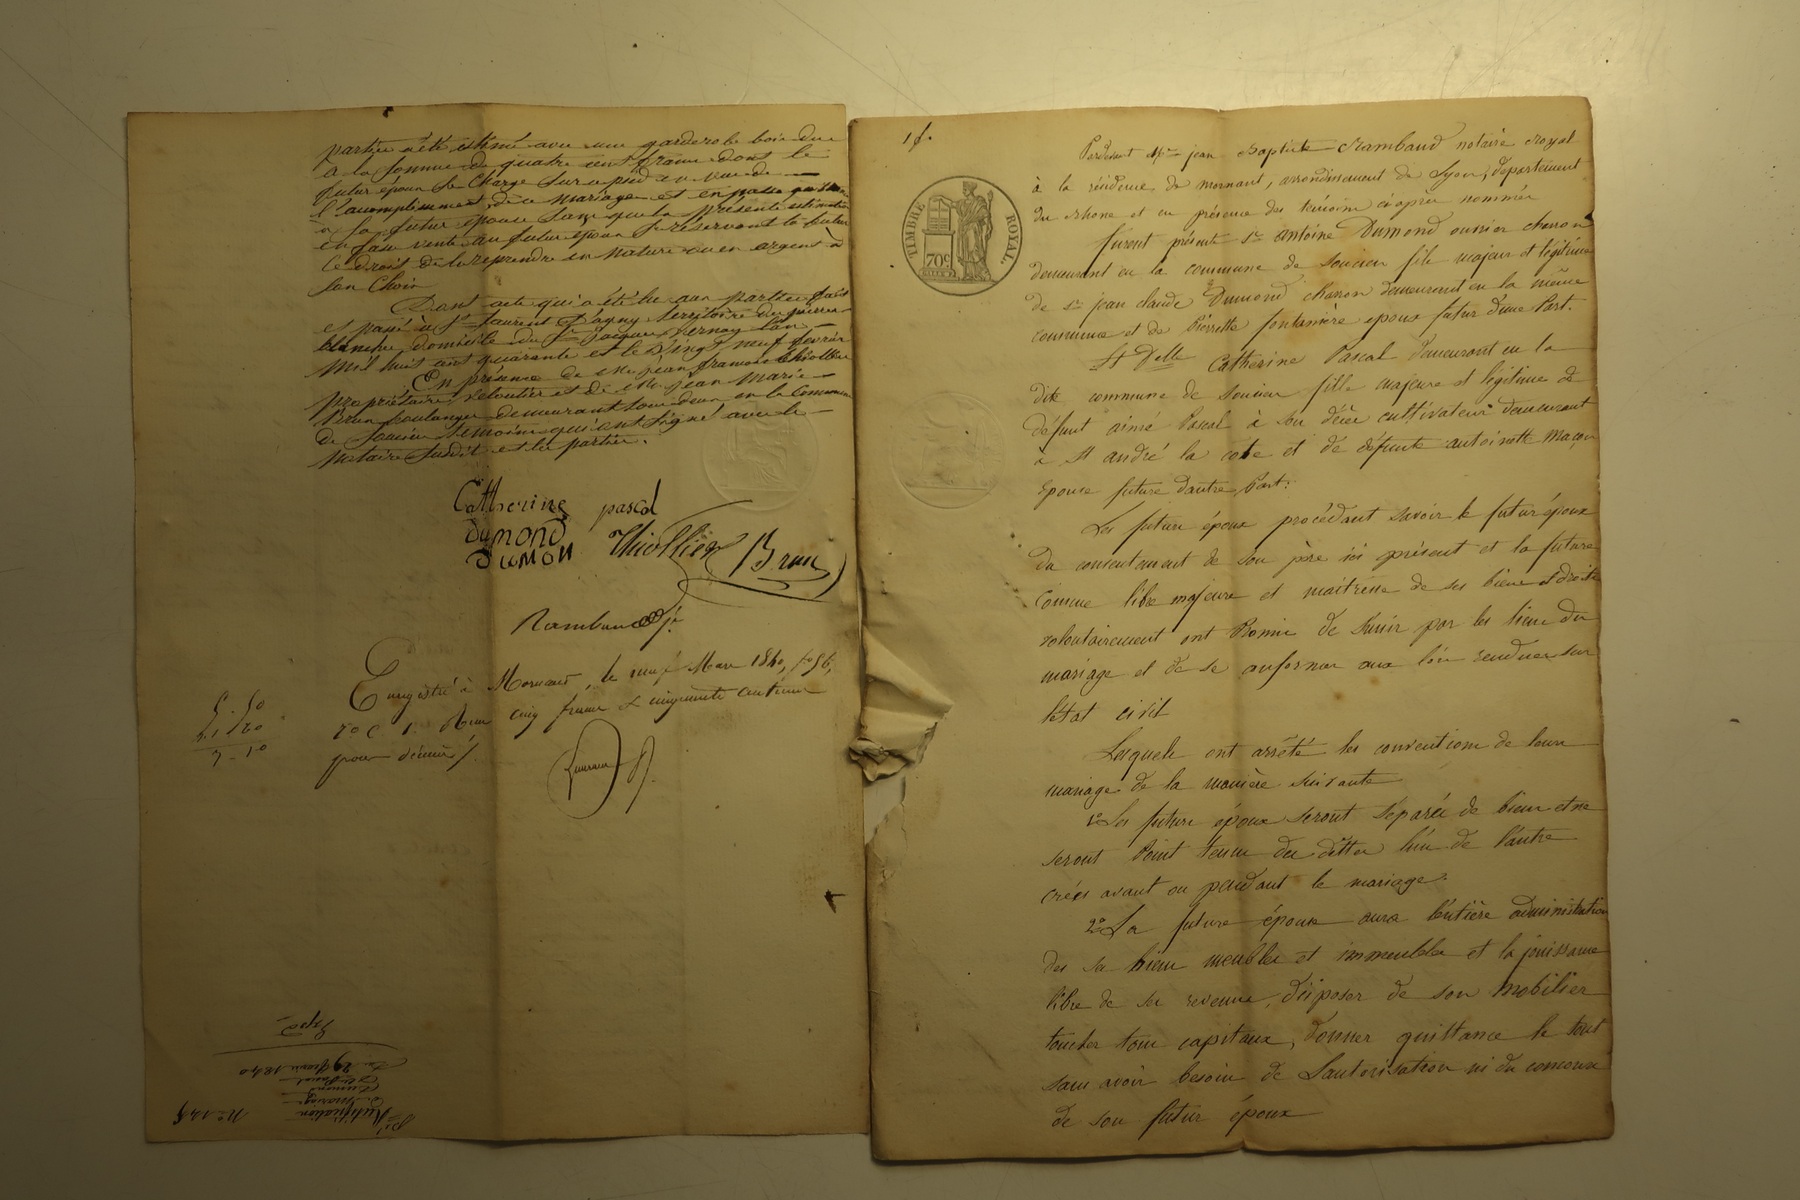 partie a été estimé avec une garderobe bois dur
à la somme de quatre cent franc dont le
futur époux se charge sur ce pied en vue de
l'accomplissement de ce mariage et en passe
à la future épouse sans que la présente estimation
en fasse vente au futur époux se réservant la future
le droit de la reprendre en nature ou en argent à
son Choix
Dont acte qui a été lu aux parties fait
et passé à St Laurent D'agny territoire de pierre
blanche domicile du Sr Jacques vernay l'an
mil huit cent quarante et le Vingt neuf février
En présence de Me jean françois thiollier
propriétaire veloutier et de Me jean marie
Brun boulanger demeurant tous deux en la Commune
de Soucieu témoins qui ont signé avec le
Notaire susdit et les parties.
Catherine pascal
Dumond
Dumon Thiollier Brun
Rambaud
Enregistré à Mornant, le neuf Mars 1840, fo 56,
Ro C 1. Reçu cinq francs & cinquante centimes
pour décime
5-50
7-10
No 145
Ratification
de mariage
Dumond
Du 29 février 1840
Expé
1f.
TIMBRE ROYAL.
70c
Pardevant Me jean Baptiste Rambaud notaire royal
à la résidence de mornant, arrondissement de Lyon, département
du rhone et en présence des témoins ci après nommés
furent présents sr antoine Dumond ouvrier charron
demeurant en la commune de Soucieu fils majeur et légitime
de sr jean claude Dumond charron demeurant en la même
commune et de pierrette fontanière epoux futur d'une Part.
Et Delle Catherine Pascal demeurant en la
dite commune de Soucieu fille majeure et légitime de
défunt aimé Pascal à son décès cultivateur demeurant
à St andré la cote et de défunte antoinette Maçon
épouse future d'autre Part.
Les futurs époux procédant savoir le futur époux
du consentement de son père ici présent et la future
comme libre majeure et maitresse de ses biens et droits
volontairement ont Promis de S'unir par les liens du
mariage et de se conformer aux lois rendues sur
l'état civil
Lesquels ont arrêté les conventions de leur
mariage de la manière suivante
1o Les futurs époux seront séparés de biens et ne
seront Point tenus des dettes l'un de l'autre
créés avant ou pendant le mariage.
2o La future épouse aura l'entière administration
des ses biens meubles et immeubles et la jouissance
libre de ses revenus, disposer de son mobilier
toucher tous capitaux, donner quittance le tout
sans avoir besoin de L'autorisation ni du concours
de son futur époux